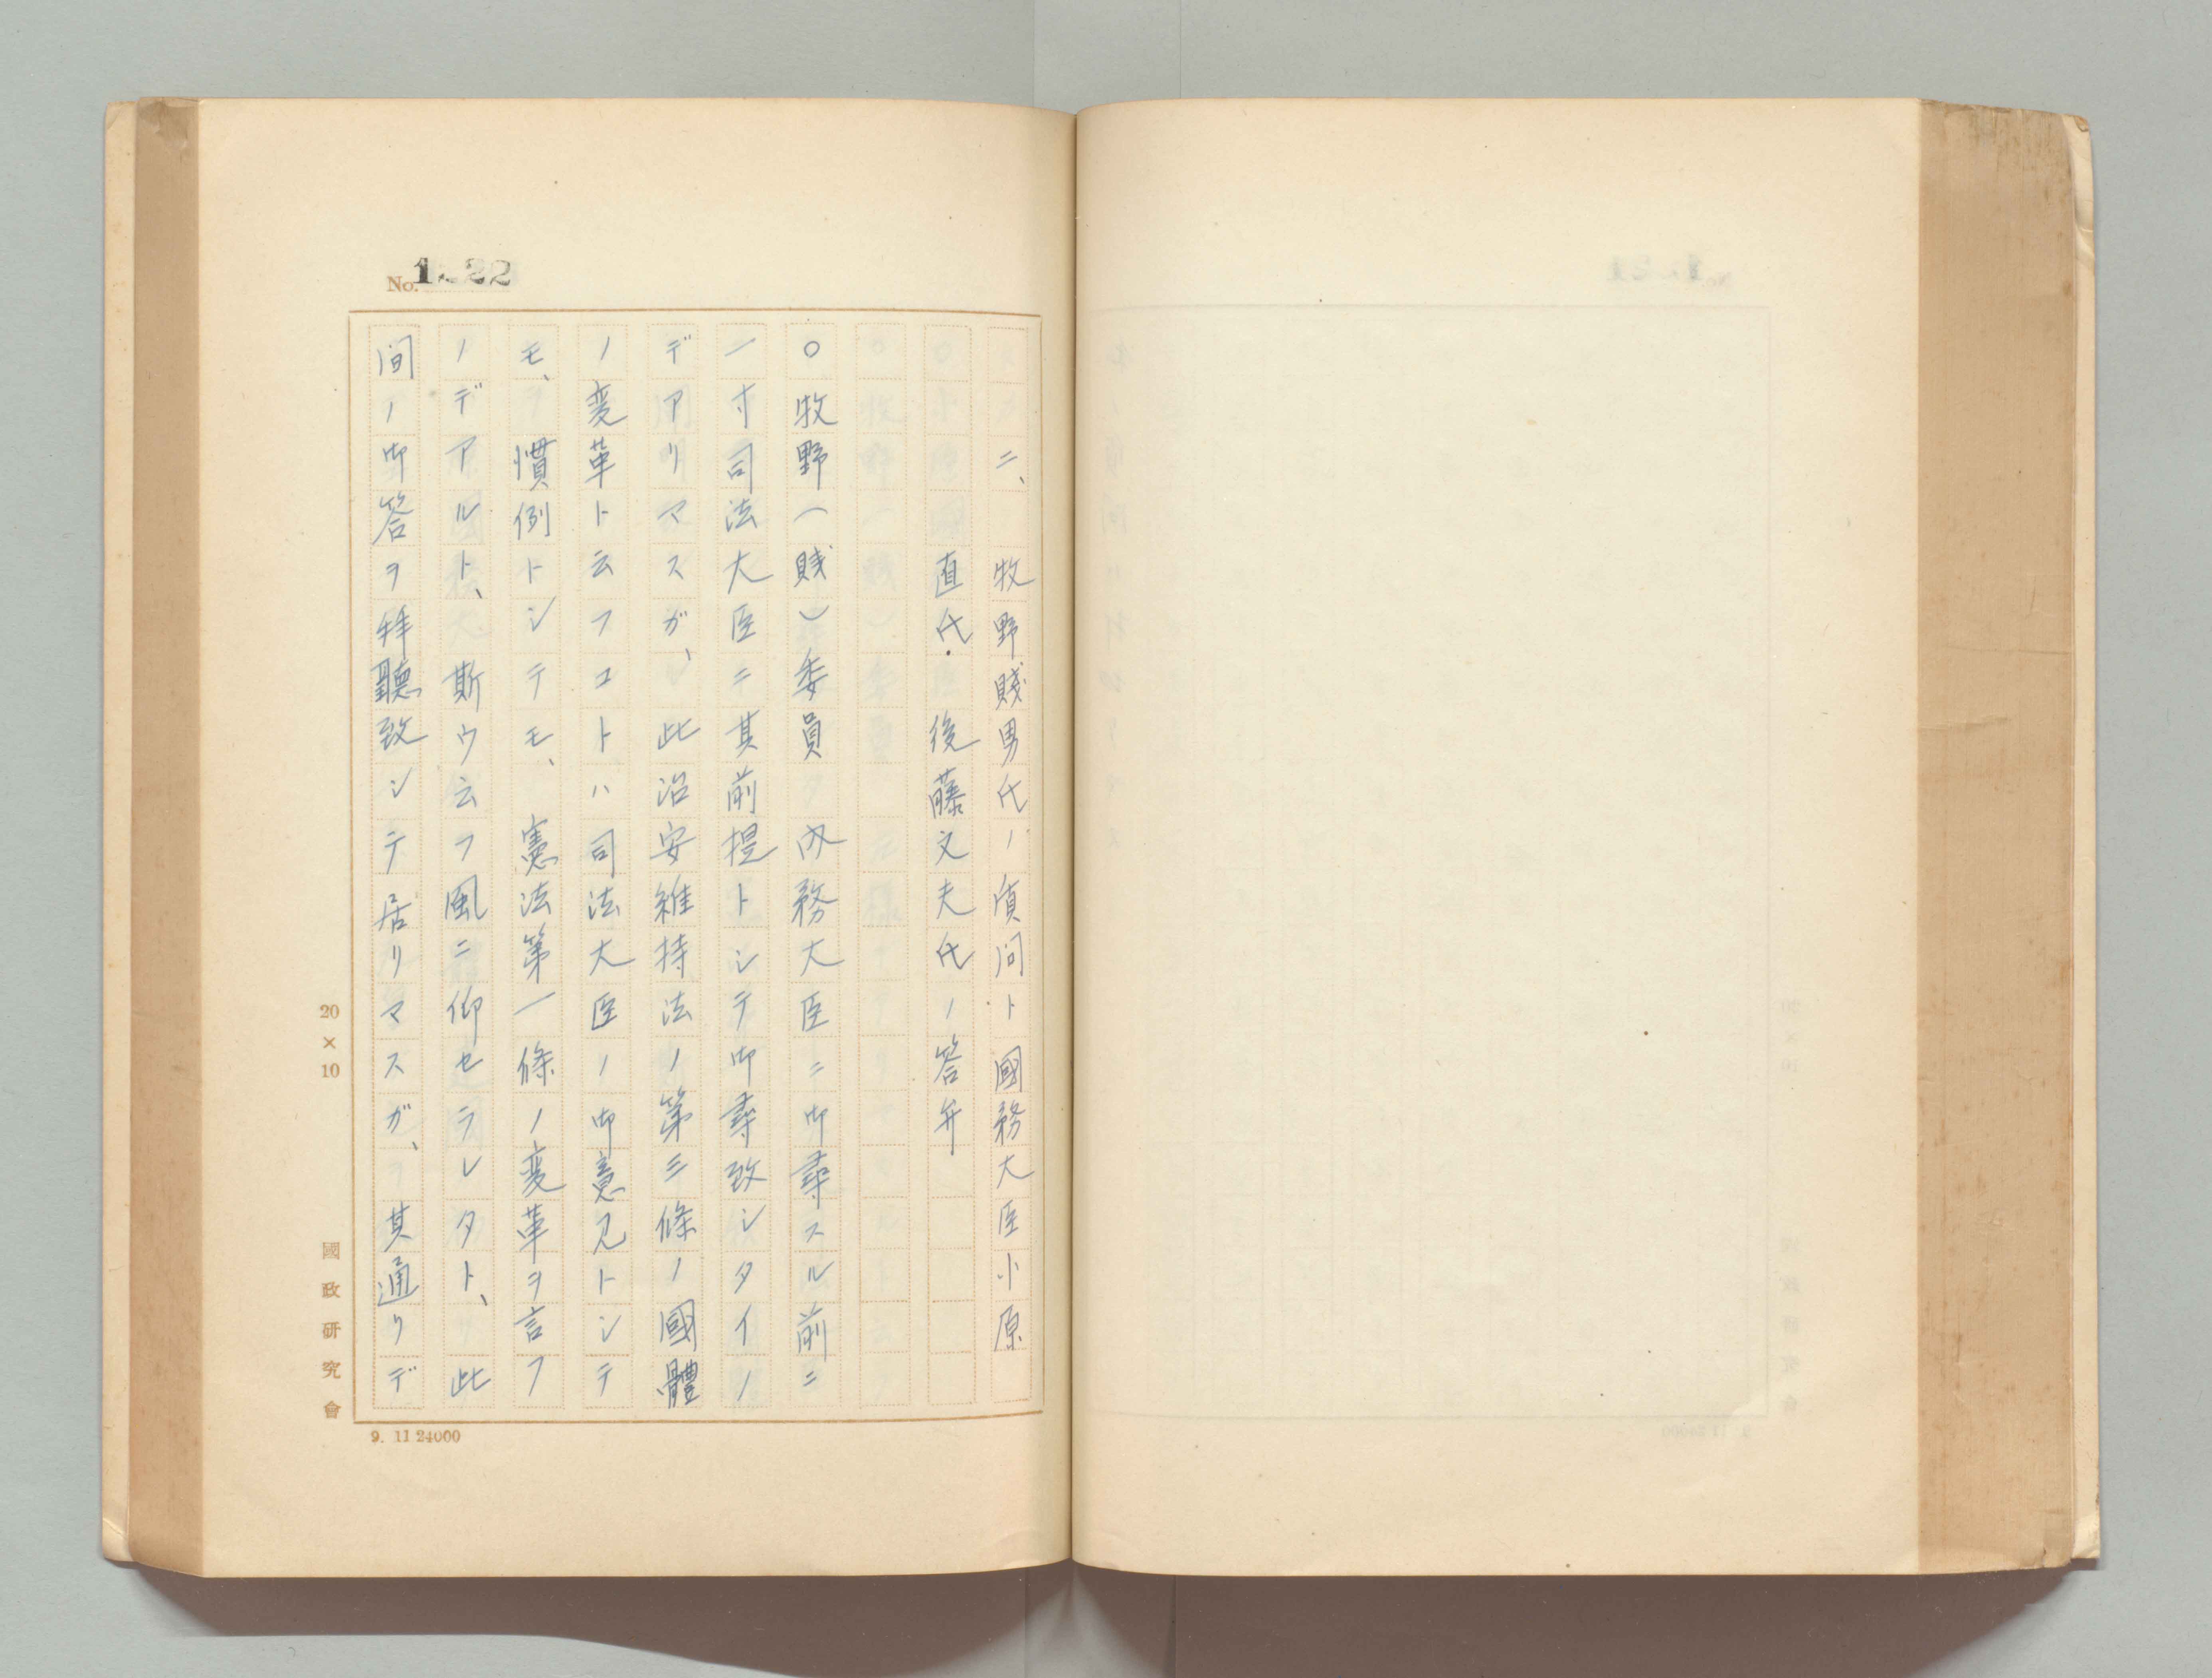 二、牧野賤男氏ノ質问ト國務大臣小原
直氏・後藤文夫氏ノ答弁
○牧野(賤)委員 内務大臣ニ御尋スル前ニ
一寸司法大臣ニ其前提トシテ御尋致シタイノ
デアリマスガ、此治安維持法ノ第三條ノ國體
ノ変革ト云フコトハ司法大臣ノ御意見トシテ
モ、慣例トシテモ、憲法第一條ノ変革ヲ言フ
ノデアルト、斯ウ云フ風ニ仰セラレタト、此
间ノ御答ヲ拜聽致シテ居リマスガ、其通リデ
No.
22
20×10
國政研究會
9. 11 24000